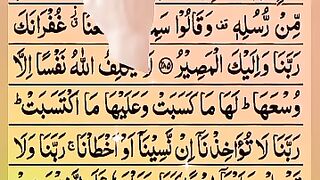 مِّنْ رُّسُلِهٖ ۫ وَقَالُوْا غُفْرَانَكَ
رَبَّنَا وَاِلَيْكَ الْمَصِيْرُ ﴿۲۸۵﴾ لَا يُكَلِّفُ اللّٰهُ نَفْسًا اِلَّا
وُسْعَهَا ؕ لَهَا مَا كَسَبَتْ وَعَلَيْهَا مَا اكْتَسَبَتْ ؕ
رَبَّنَا لَا تُؤَاخِذْنَاۤ اِنْ نَّسِيْنَاۤ اَوْ اَخْطَاْنَا ۚ رَبَّنَا وَلَا